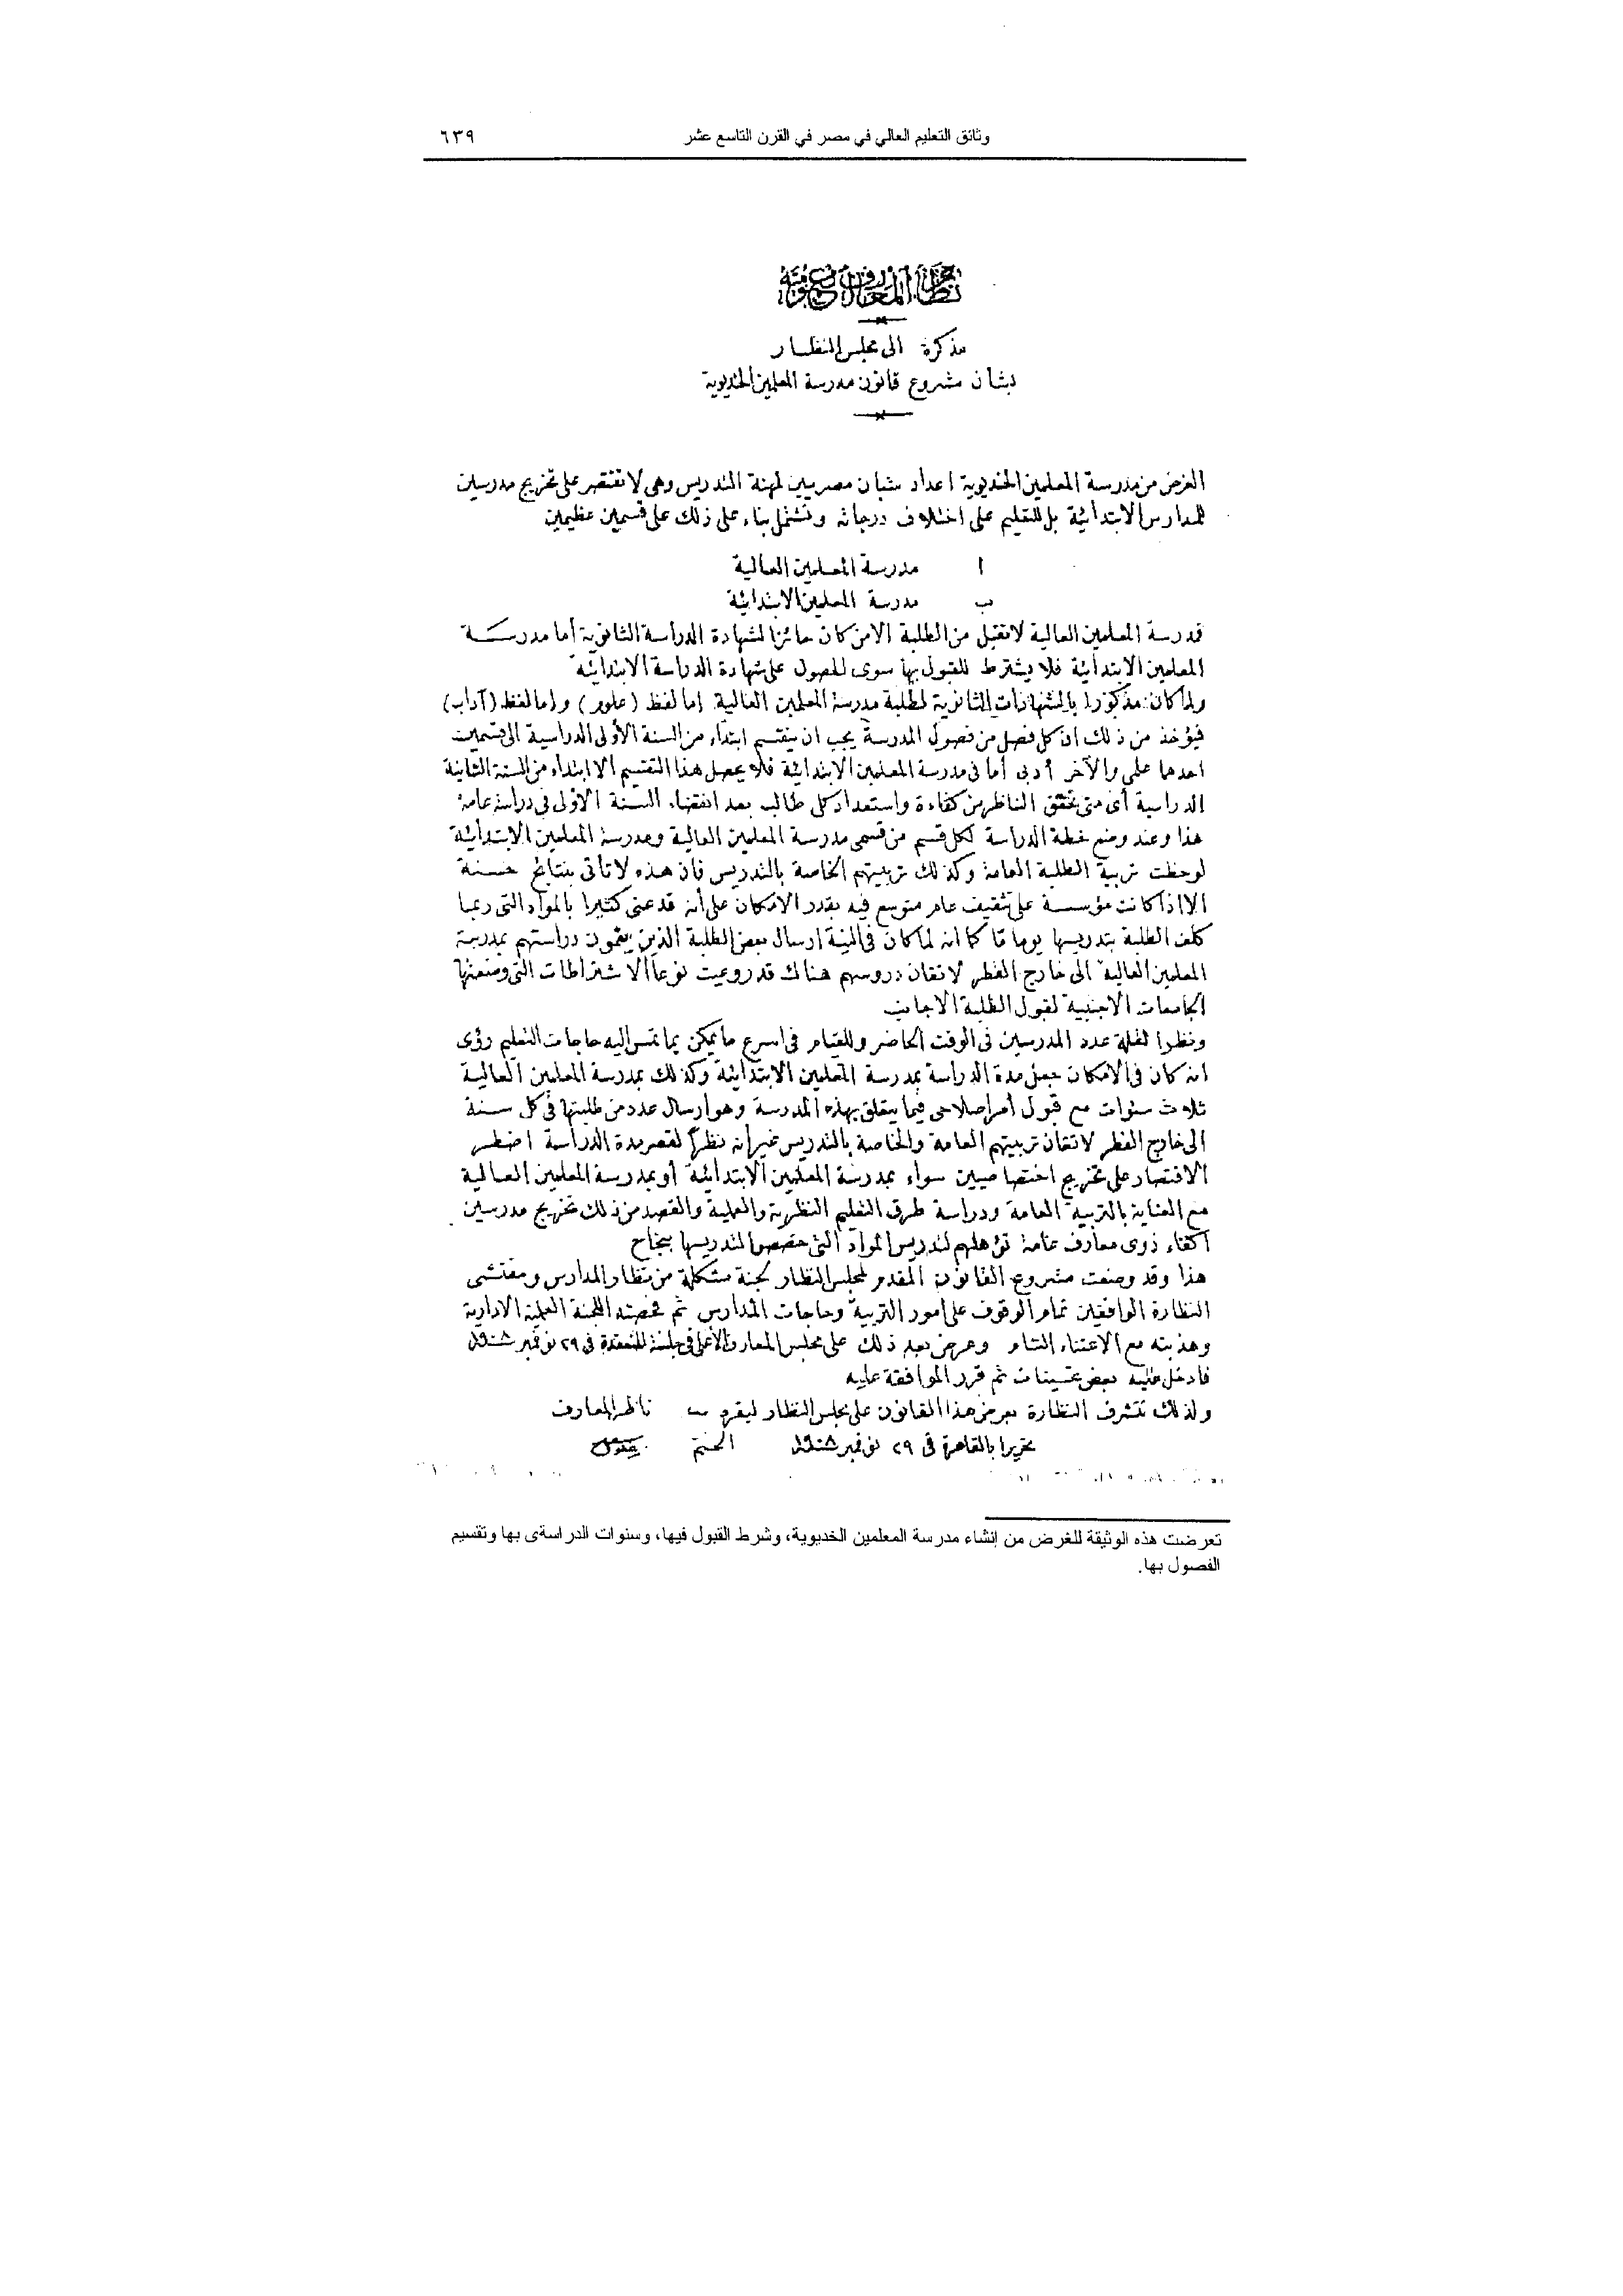 وثائق التعليم العالي في مصر في القرن التاسع عشر ٦٣٩
نظارة المعارف العمومية
مذكرة الى مجلس النظار
بشأن مشروع قانون مدرسة المعلمين الخديوية
الغرض من مدرسة المعلمين الخديوية اعداد شبان مصريين لمهنة التدريس وهى لا تقتصر على تخريج مدرسين
للمدارس الابتدائية بل للتعليم على اختلاف درجاته وتشتمل بناء على ذلك على قسمين عظيمين
ا مدرسة المعلمين العالية
ب مدرسة المعلمين الابتدائية
فمدرسة المعلمين العالية لا تقبل من الطلبة الا من كان حائزا لشهادة الدراسة الثانوية أما مدرسة
المعلمين الابتدائية فلا يشترط للقبول بها سوى الحصول على شهادة الدراسة الابتدائية
ولما كان مذكورا بالشهادات الثانوية لطلبة مدرسة المعلمين العالية إما لفظ (علوم) وإما لفظ (آداب)
فيؤخذ من ذلك ان كل فصل من فصول المدرسة يجب ان ينقسم ابتداء من السنة الأولى الدراسية الى قسمين
احدهما علمى والآخر أدبى أما فى مدرسة المعلمين الابتدائية فلا يحصل هذا التقسيم الا ابتداء من السنة الثانية
الدراسية أى متى تحقق الناظر من كفاءة واستعداد كل طالب بعد انقضاء السنة الأولى فى دراسة عامة
هذا وعند وضع خطة الدراسة لكل قسم من قسمى مدرسة المعلمين العالية ومدرسة المعلمين الابتدائية
لوحظت تربية الطلبة العامة وكذلك تربيتهم الخاصة بالتدريس فان هذه لا تأتى بنتائج حسنة
الا اذا كانت مؤسسة على تثقيف عام متوسع فيه بقدر الامكان على أنه قد عنى كثيرا بالمواد التى ربما
كلف الطلبة بتدريسها يوما ما كما انه لما كان فى النية ارسال بعض الطلبة الذين يتمون دراستهم بمدرسة
المعلمين العالية الى خارج القطر لاتقان دروسهم هناك قد روعيت نوعا الاشتراطات التى وضعتها
الجامعات الاجنبية لقبول الطلبة الاجانب
ونظرا لقلة عدد المدرسين فى الوقت الحاضر وللقيام فى اسرع ما يمكن بما تمس اليه حاجات التعليم رؤى
انه كان فى الامكان جعل مدة الدراسة بمدرسة المعلمين الابتدائية وكذلك بمدرسة المعلمين العالية
ثلاث سنوات مع قبول أمر اصلاحى فيما يتعلق بهذه المدرسة وهو ارسال عدد من طلبتها فى كل سنة
الى خارج القطر لاتقان تربيتهم العامة والخاصة بالتدريس غير انه نظرا لقصر مدة الدراسة اضطر
الاقتصار على تخريج اختصاصيين سواء بمدرسة المعلمين الابتدائية أو بمدرسة المعلمين العالية
مع العناية بالتربية العامة ودراسة طرق التعليم النظرية والعملية والقصد من ذلك تخريج مدرسين
اكفاء ذوى معارف عامة تؤهلهم لتدريس المواد التى خصصوا لتدريسها بنجاح
هذا وقد وضعت مشروع القانون المقدم لمجلس النظار لجنة مشكلة من نظار المدارس ومفتشى
النظارة الواقفين تمام الوقوف على أمور التربية وحاجات المدارس ثم فحصته اللجنة العلمية الادارية
وهذبته مع الاعتناء التام وعرض بعد ذلك على مجلس المعارف الأعلى فى جلسته المنعقدة فى ٢٩ نوفمبر سنة ١٩٠٨
فادخل عليه بعض تحسينات ثم قرر الموافقة عليه
ولذلك تتشرف النظارة بعرض هذا القانون على مجلس النظار ليقرره ناظر المعارف
تحريرا بالقاهرة فى ٢٩ نوفمبر سنة ١٩٠٨ الختم
تعرضت هذه الوثيقة للغرض من إنشاء مدرسة المعلمين الخديوية، وشرط القبول فيها، وسنوات الدراسةى بها وتقسيم
الفصول بها.